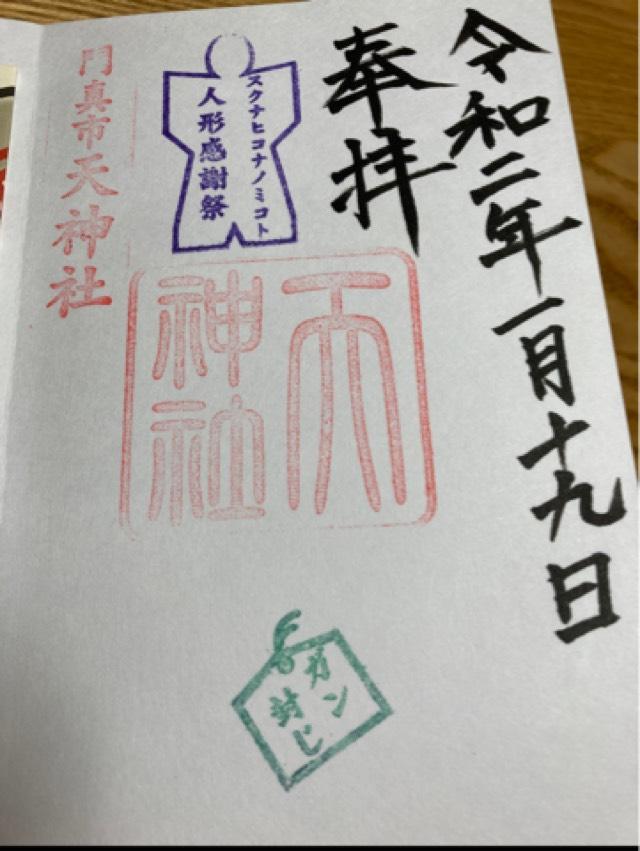 令和二年一月十九日
奉拝
スクナヒコナノミコト
人形感謝祭
門真市天神社
天
神社
ガン
封じ